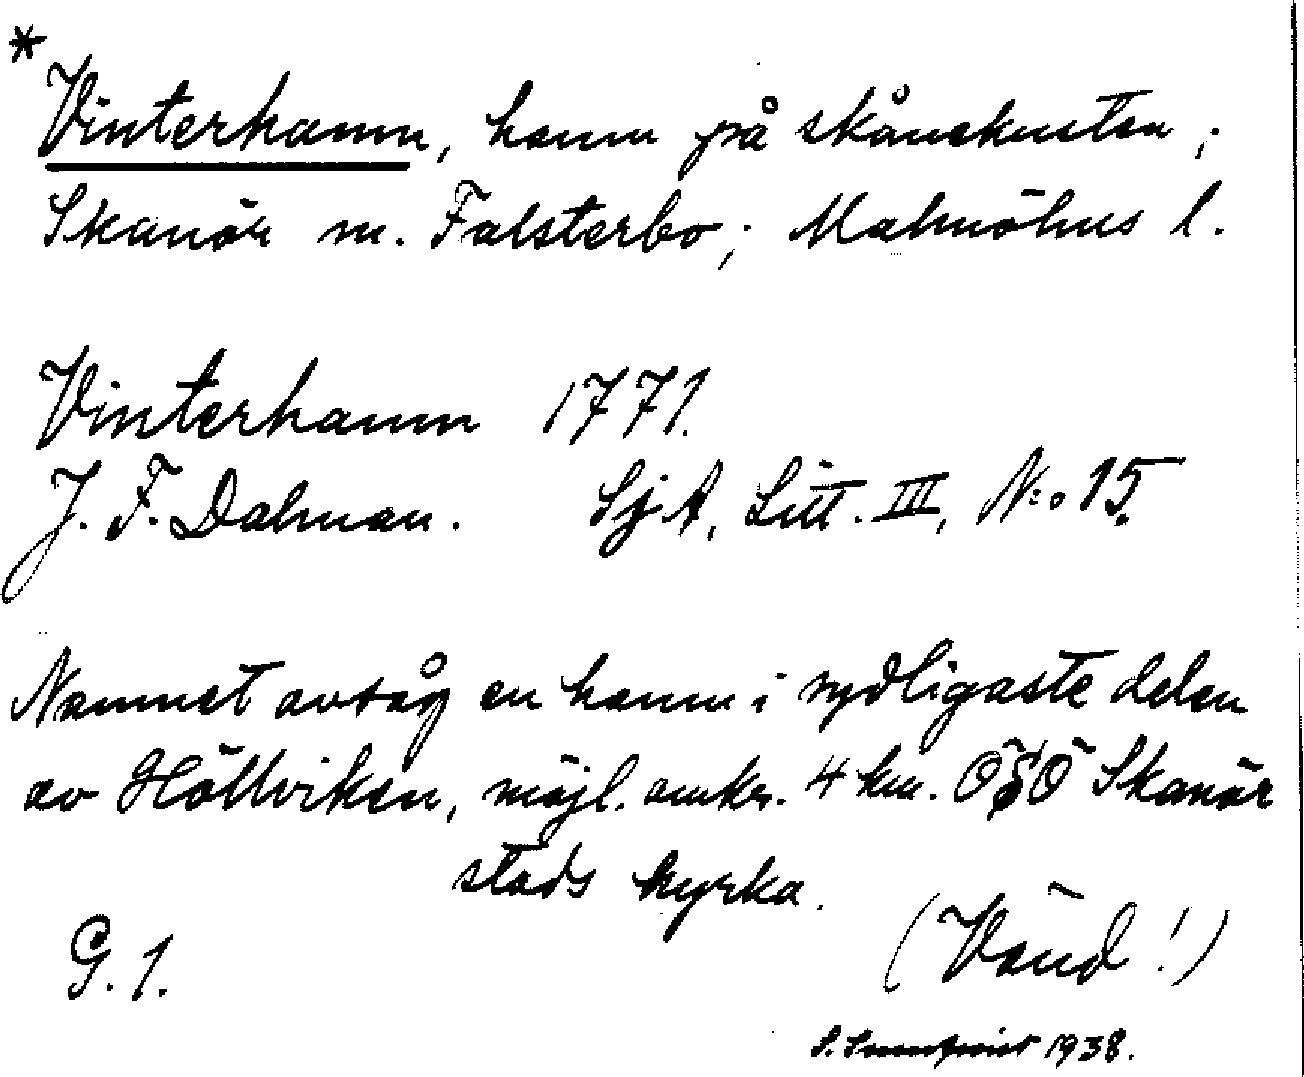 *
Vinterhamn, hamn på skånekusten;
Skanör m. Falsterbo; Malmöhus l.
Vinterhamn 1771.
J. F. Dalman. SjA, Litt. III, N:o 15.
Namnet avsåg en hamn i sydligaste delen
av Höllviken, möjl. omkr. 4 km. OSO Skanör
stads kyrka.
(Vänd!)
G. 1.
1938.